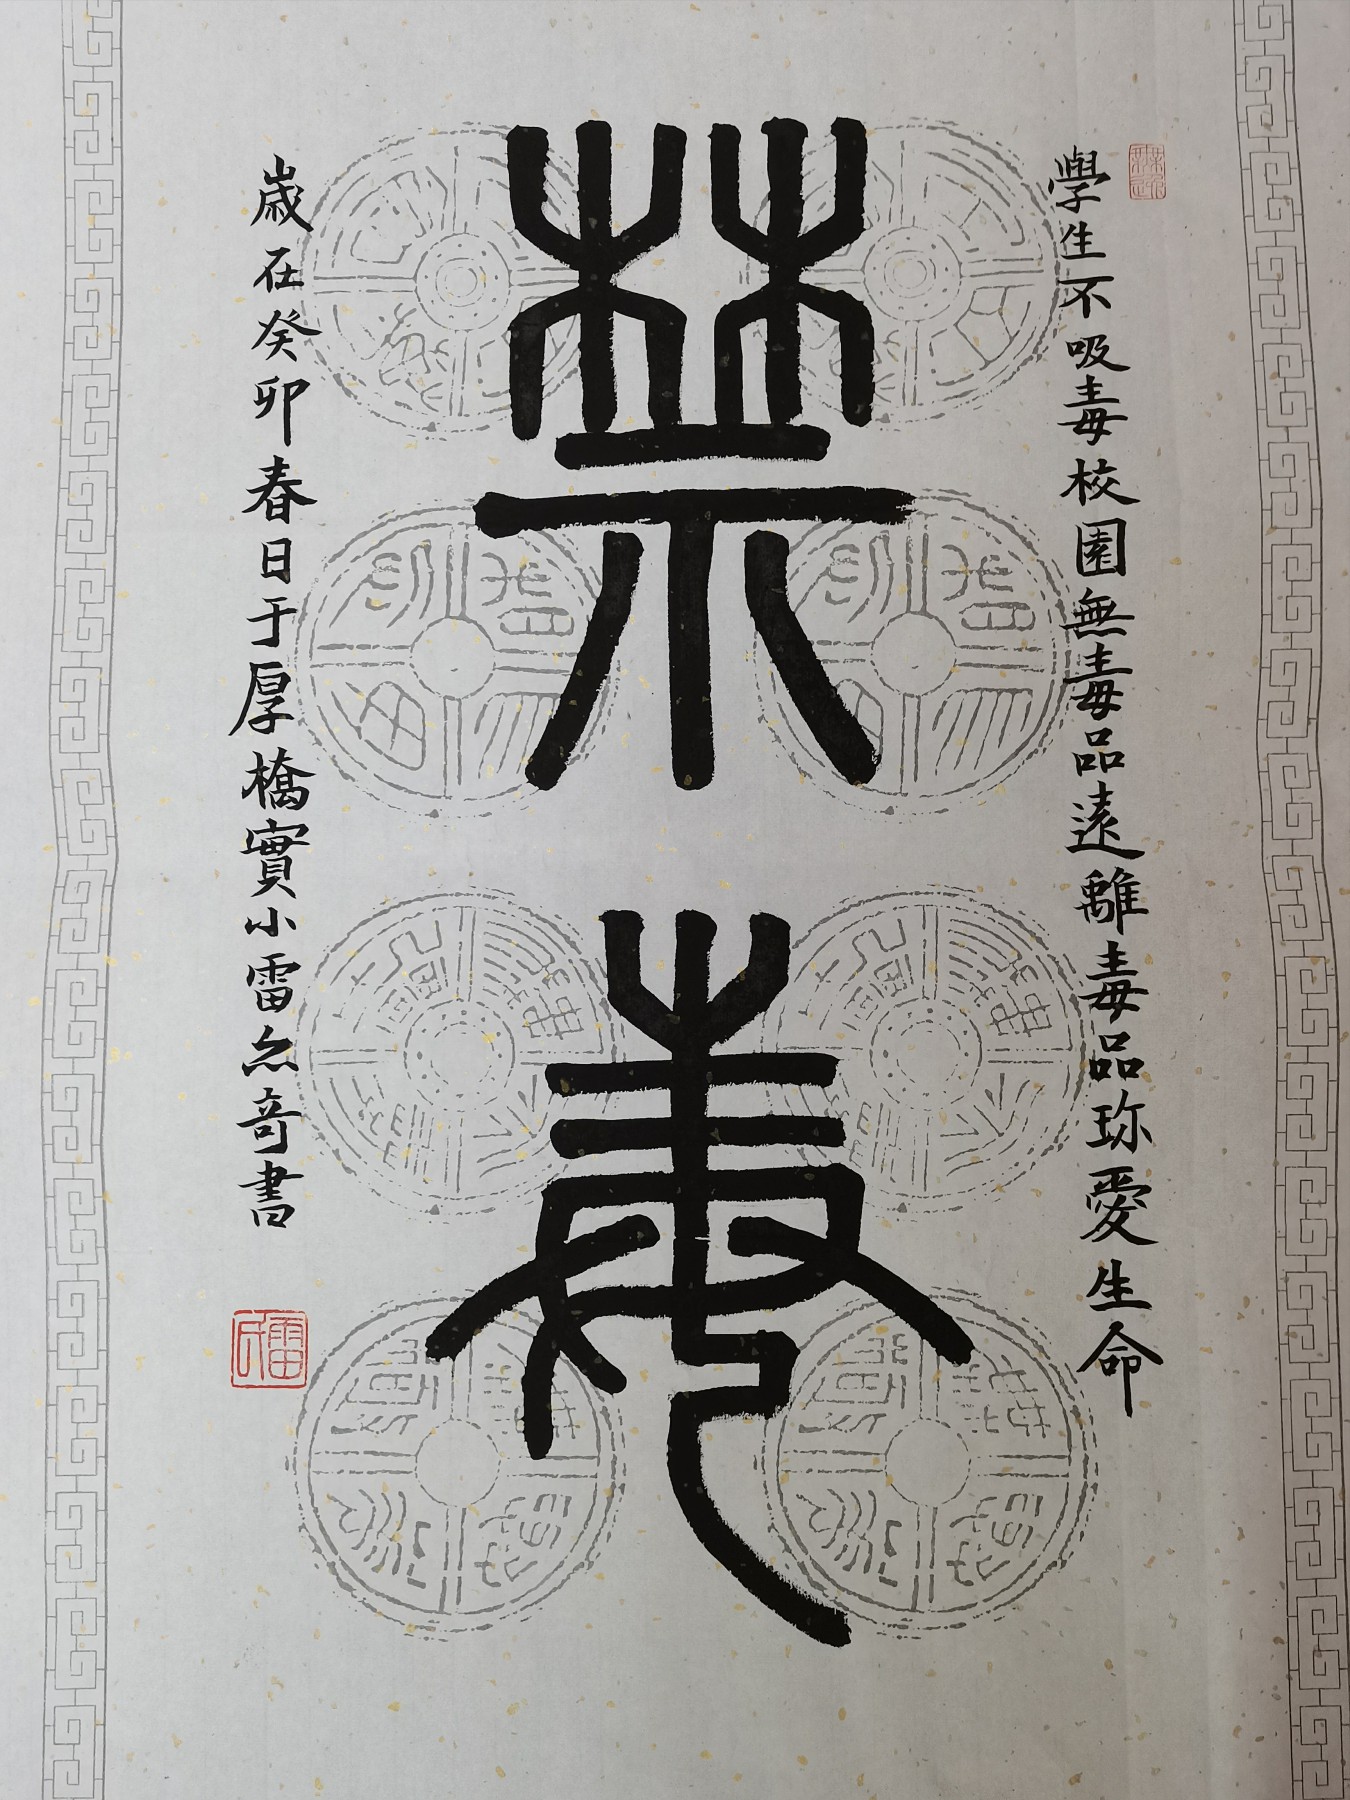 學生不吸毒校園無毒品遠離毒品珎愛生命
禁毒
歲在癸卯春日于厚橋實小雷尒奇書
雷氏